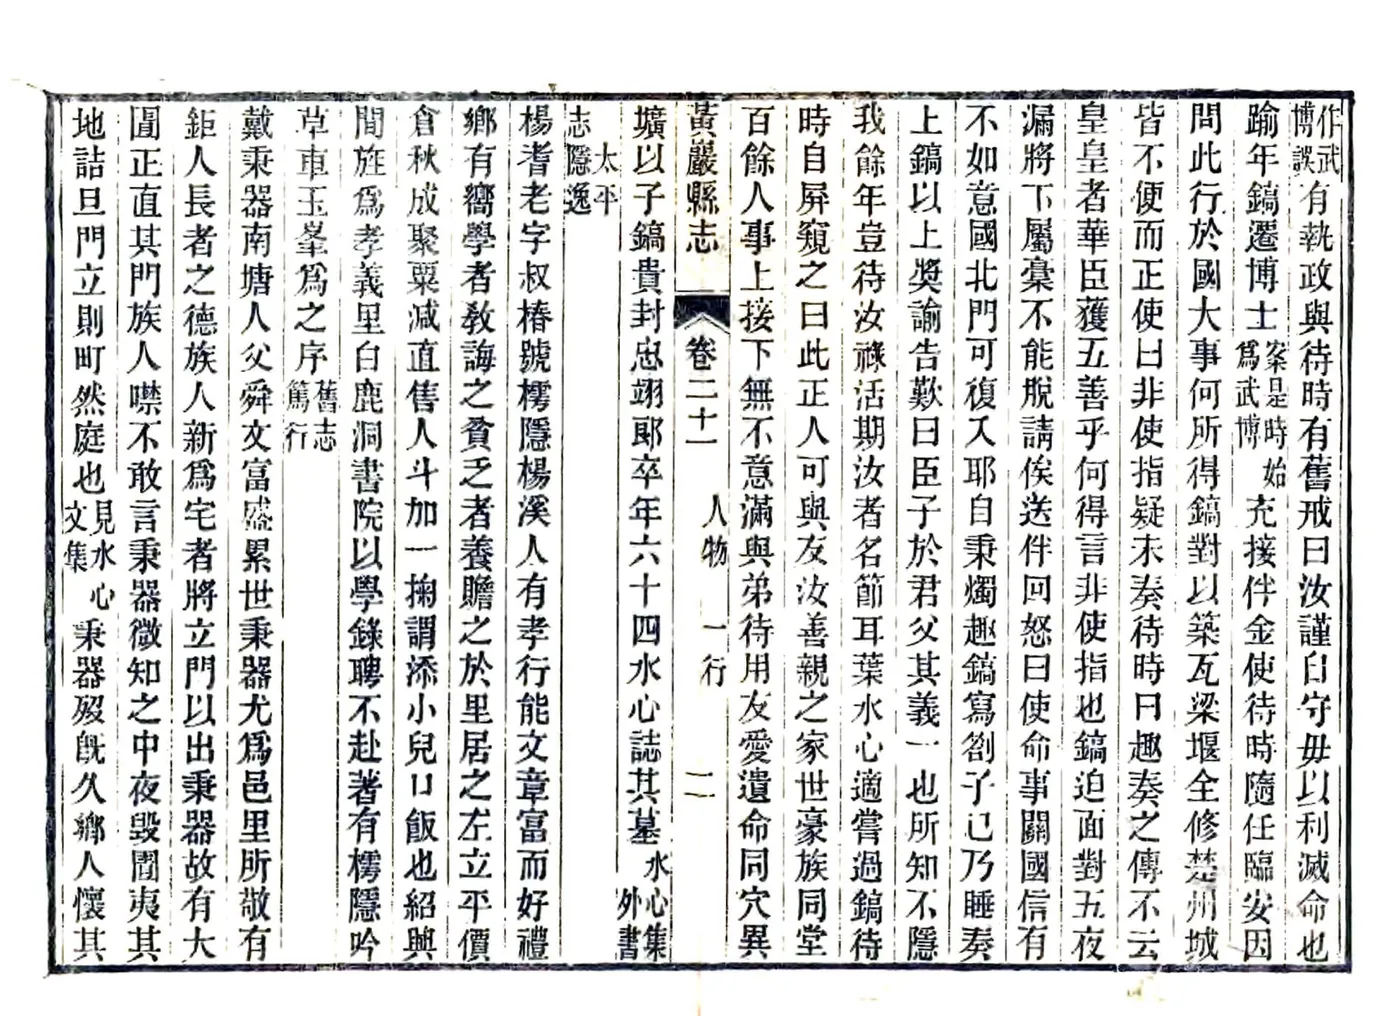 作武博誤有執政與待時有舊戒曰汝謹自守毋以利滅命也
踰年鎬遷博士案是時始爲武博充接伴金使待時隨任臨安因
問此行於國大事何所得鎬對以築瓦梁堰全修楚州城
皆不便而正使曰非使指疑未奏待時曰趣奏之傳不云
皇皇者華臣獲五善乎何得言非使指也鎬迫面對五夜
漏將下屬稾不能脫請俟送伴回怒曰使命事關國信有
不如意國北門可復入耶自秉燭趣鎬寫劄子已乃睡奏
上鎬以上獎諭告歎曰臣子於君父其義一也所知不隱
我餘年豈待汝祿活期汝者名節耳葉水心適嘗過鎬待
時自屏窺之曰此正人可與友汝善親之家世豪族同堂
百餘人事上接下無不意滿與弟待用友愛遺命同穴異
黃巖縣志 卷二十一 人物 一行 二
壙以子鎬貴封忠翊郎卒年六十四水心誌其墓水心集外書
太平志隱逸
楊耆老字叔椿號樗隱楊溪人有孝行能文章富而好禮
鄉有嚮學者敎誨之貧乏者養贍之於里居之左立平價
倉秋成聚粟減直售人斗加一掬謂添小兒口飯也紹興
間旌爲孝義里白鹿洞書院以學錄聘不赴著有樗隱吟
草車玉峯爲之序舊志篤行
戴秉器南塘人父舜文富盛累世秉器尤爲邑里所敬有
鉅人長者之德族人新爲宅者將立門以出秉器故有大
圊正直其門族人噤不敢言秉器微知之中夜毀圊夷其
地詰旦門立則町然庭也見水心文集秉器歿旣久鄉人懷其